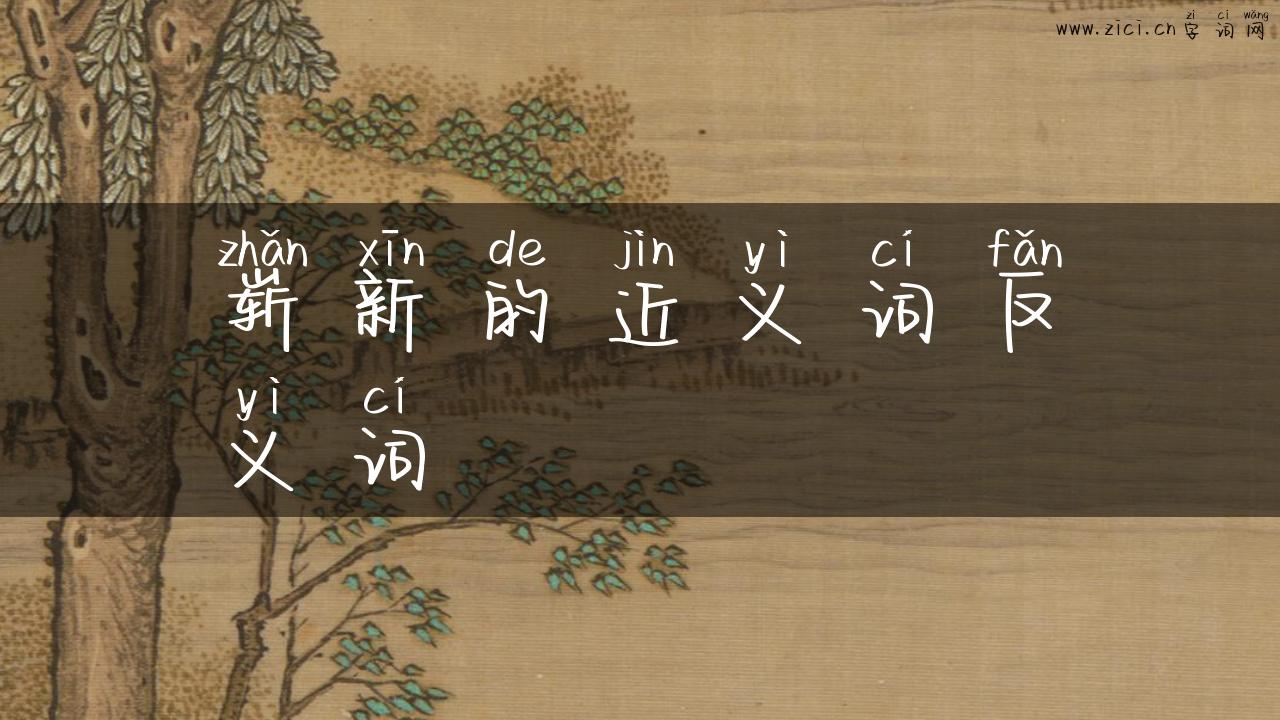 zì cí wǎng
www.zici.cn 字词网
zhǎn xīn de jìn yì cí fǎn
崭新的近义词反
yì cí
义词